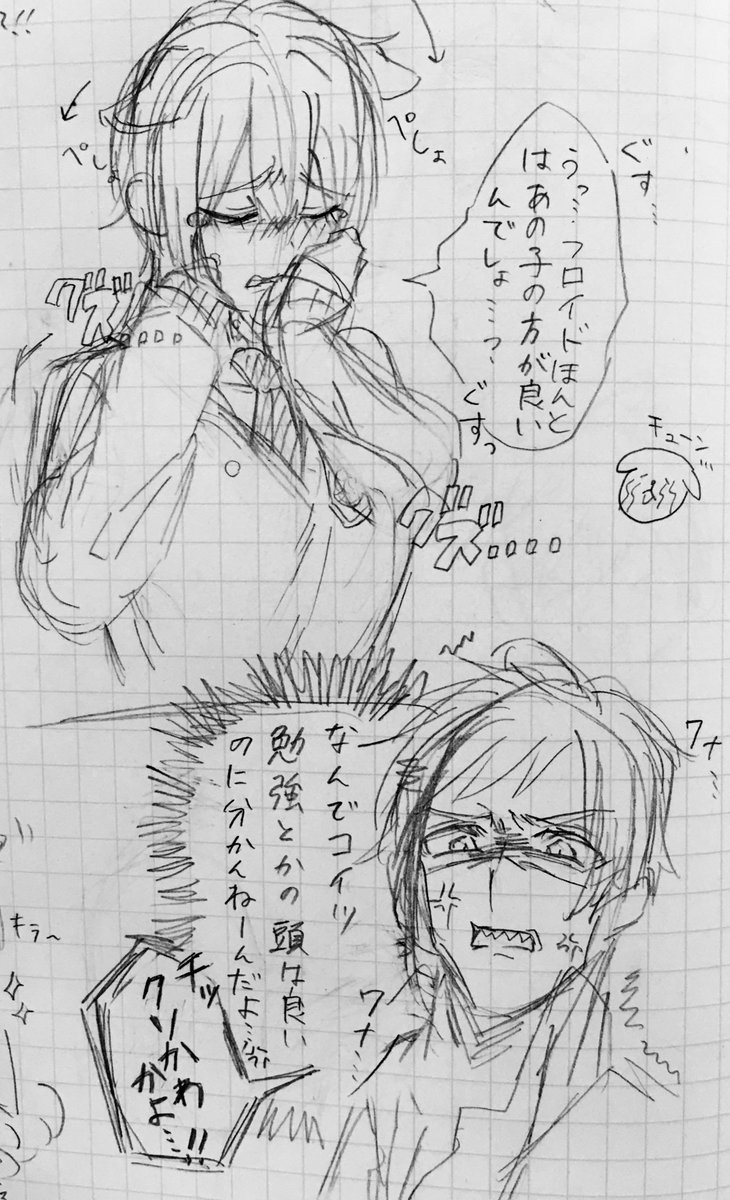 !!
ぺしょ
ぺしょ
ぐす…
うっ…フロイドほんと
はあの子の方が良い
んでしょ…っ、
ぐすっ
グズ゙…
キューン
グズ゙…
なんでコイツ
勉強とかの頭は良い
のに分かんねーんだよ…
ワナ…
ワナ…
チッ
クソかわ
かよ…!!
キラ〜